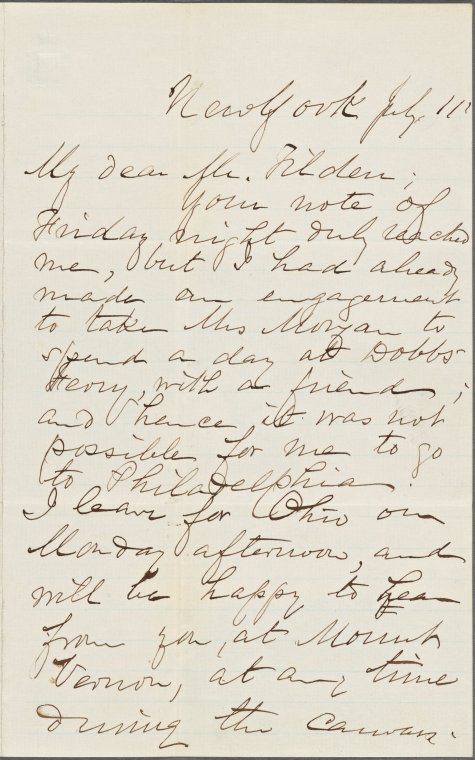 New York July 11
My dear Mr. Tilden;
Your note of
Friday night duly reached
me, but I had already
made an engagement
to take Mrs Morgan to
spend a day at Dobbs
Ferry, with a friend;
and hence it was not
possible for me to go
to Philadelphia.
I leave for Ohio on
Monday afternoon, and
will be happy to hear
from you, at Mount
Vernon, at any time
during the canvass.